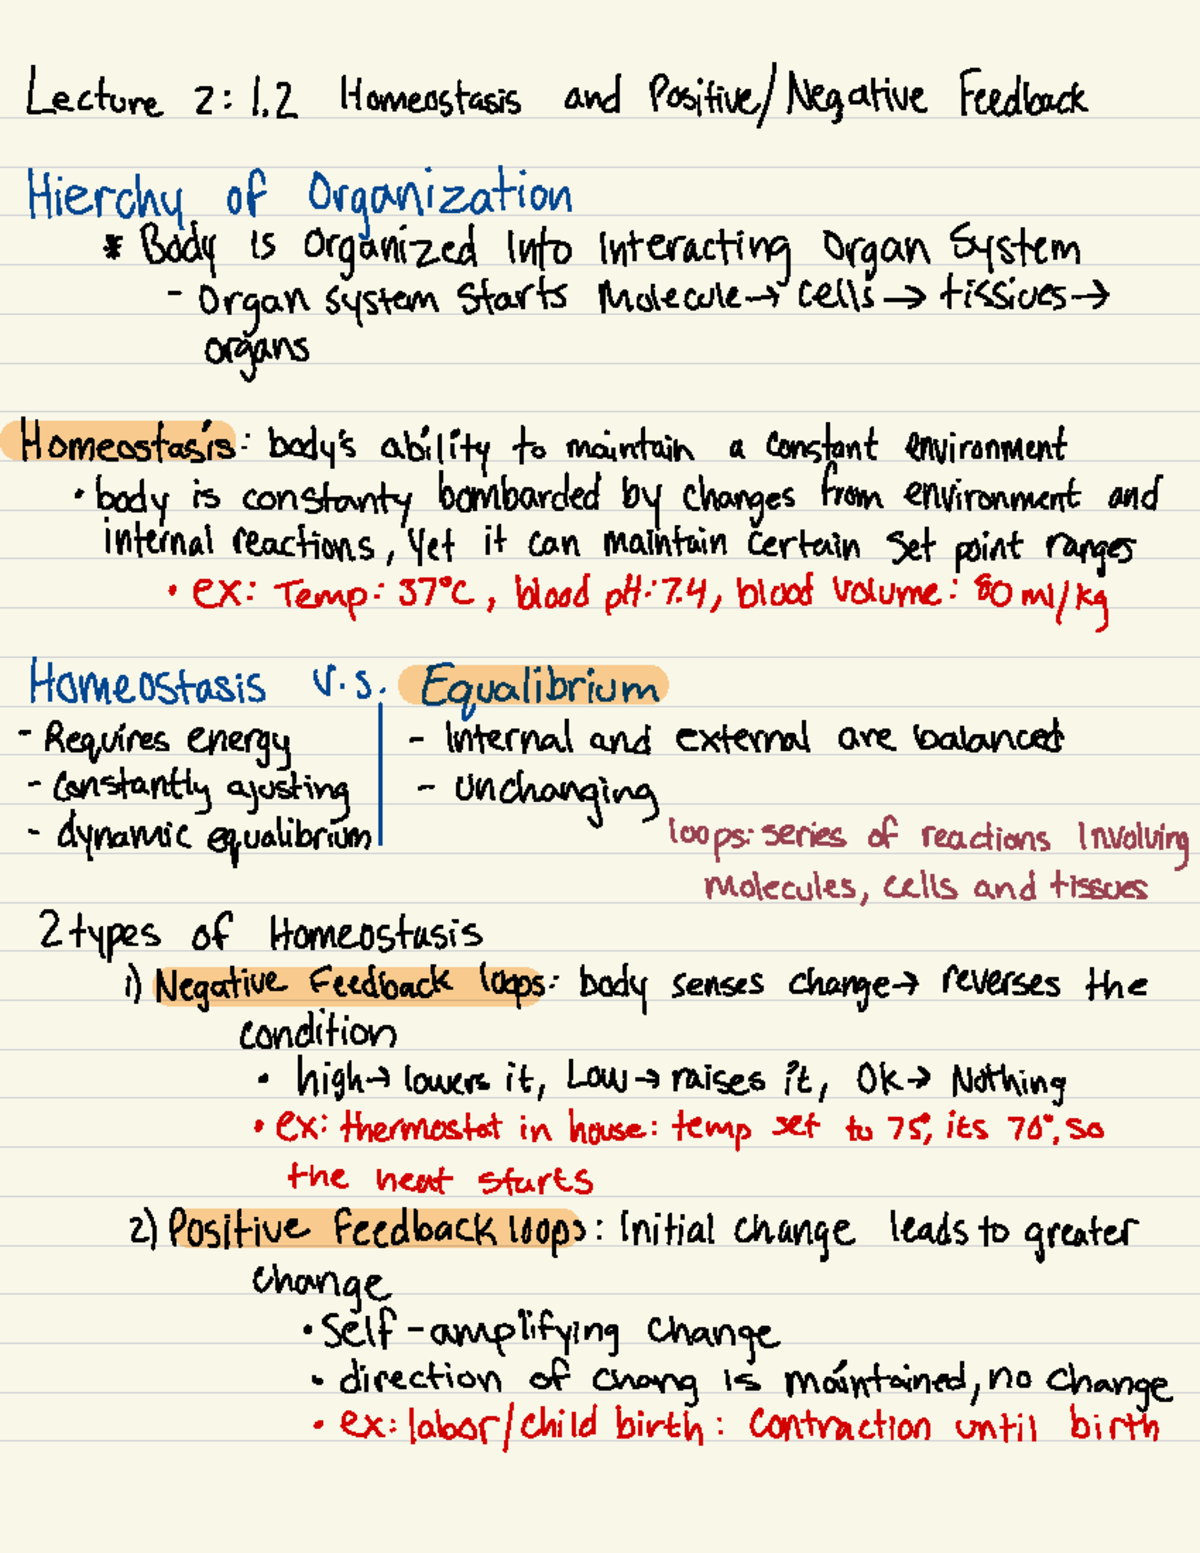 Lecture 2: 1.2 Homeostasis and Positive/Negative Feedback
Hierchy of Organization
* Body is Organized Into Interacting Organ System
- Organ system starts Molecule → Cells → tissues →
organs
Homeostasis: body's ability to maintain a constant environment
• body is constanty bombarded by changes from environment and
internal reactions, Yet it can maintain certain set point ranges
• ex: Temp: 37°C, blood pH: 7.4, blood volume: 80 ml/kg
Homeostasis v.s. Equalibrium
- Requires energy - Internal and external are balanced
- Constantly ajusting - Unchanging
- dynamic equalibrium
loops: series of reactions Involving
molecules, cells and tissues
2 types of Homeostasis
1) Negative Feedback loops: body senses change → reverses the
condition
• high → lowers it, Low → raises it, Ok → Nothing
• ex: thermostat in house: temp set to 75°, its 70°, so
the heat starts
2) Positive Feedback loops: Initial change leads to greater
change
• Self-amplifying change
• direction of chang is maintained, no change
• ex: labor/child birth: Contraction until birth